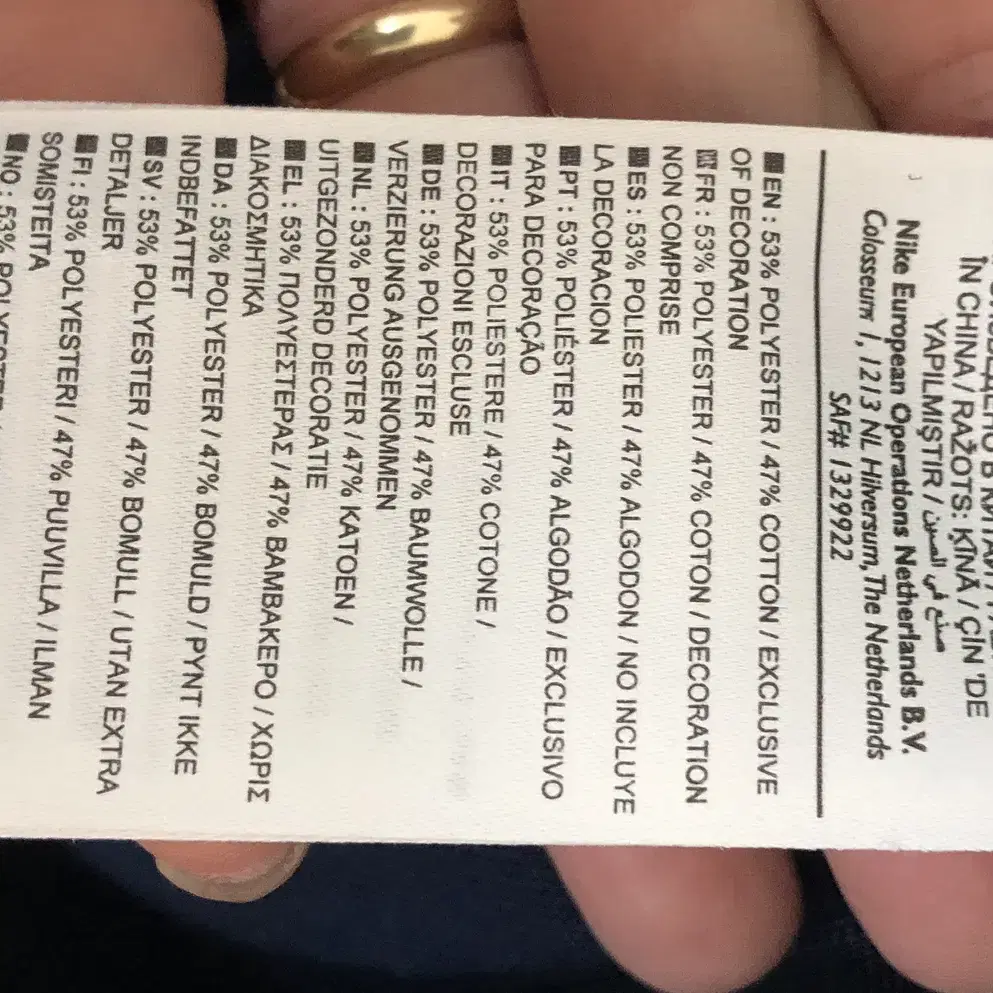 IN CHINA / RAŽOTS: ĶĪNĀ / ÇİN 'DE
YAPILMIŞTIR / صنع في الصين
Nike European Operations Netherlands B.V.
Colosseum 1, 1213 NL Hilversum, The Netherlands
SAF# 1329922
EN : 53% POLYESTER / 47% COTTON / EXCLUSIVE
OF DECORATION
FR : 53% POLYESTER / 47% COTON / DECORATION
NON COMPRISE
ES : 53% POLIESTER / 47% ALGODON / NO INCLUYE
LA DECORACION
PT : 53% POLIÉSTER / 47% ALGODÃO / EXCLUSIVO
PARA DECORAÇÃO
IT : 53% POLIESTERE / 47% COTONE /
DECORAZIONI ESCLUSE
DE : 53% POLYESTER / 47% BAUMWOLLE /
VERZIERUNG AUSGENOMMEN
NL : 53% POLYESTER / 47% KATOEN /
UITGEZONDERD DECORATIE
EL : 53% ΠΟΛΥΕΣΤΕΡΑΣ / 47% ΒΑΜΒΑΚΕΡΟ / ΧΩΡΙΣ
ΔΙΑΚΟΣΜΗΤΙΚΑ
DA : 53% POLYESTER / 47% BOMULD / PYNT IKKE
INDBEFATTET
SV : 53% POLYESTER / 47% BOMULL / UTAN EXTRA
DETALJER
FI : 53% POLYESTERI / 47% PUUVILLA / ILMAN
SOMISTEITA
NO : 53%